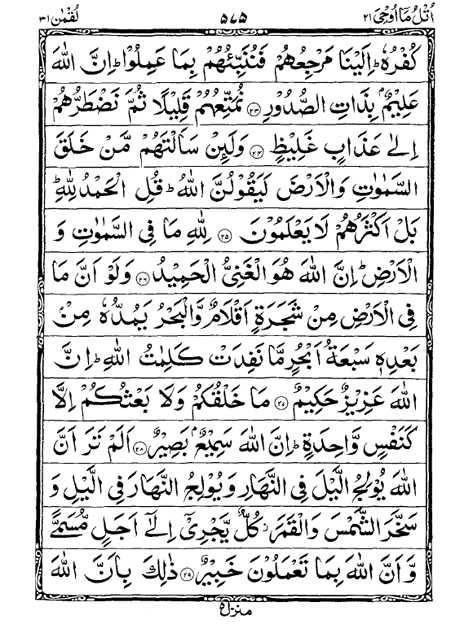 اُتْلُ مَآ اُوْحِیَ ٢١ ٥٧٥ لُقْمٰن ٣١
كُفْرُهٗ ؕ اِلَيْنَا مَرْجِعُهُمْ فَنُنَبِّئُهُمْ بِمَا عَمِلُوْا ؕ اِنَّ اللّٰهَ
عَلِيْمٌۢ بِذَاتِ الصُّدُوْرِ ﴿٢٣﴾ نُمَتِّعُهُمْ قَلِيْلًا ثُمَّ نَضْطَرُّهُمْ
اِلٰى عَذَابٍ غَلِيْظٍ ﴿٢٤﴾ وَلَئِنْ سَاَلْتَهُمْ مَّنْ خَلَقَ
السَّمٰوٰتِ وَالْاَرْضَ لَيَقُوْلُنَّ اللّٰهُ ؕ قُلِ الْحَمْدُ لِلّٰهِ ؕ
بَلْ اَكْثَرُهُمْ لَا يَعْلَمُوْنَ ﴿٢٥﴾ لِلّٰهِ مَا فِى السَّمٰوٰتِ وَ
الْاَرْضِ ؕ اِنَّ اللّٰهَ هُوَ الْغَنِىُّ الْحَمِيْدُ ﴿٢٦﴾ وَلَوْ اَنَّ مَا
فِى الْاَرْضِ مِنْ شَجَرَةٍ اَقْلَامٌ وَّالْبَحْرُ يَمُدُّهٗ مِنْۢ
بَعْدِهٖ سَبْعَةُ اَبْحُرٍ مَّا نَفِدَتْ كَلِمٰتُ اللّٰهِ ؕ اِنَّ
اللّٰهَ عَزِيْزٌ حَكِيْمٌ ﴿٢٧﴾ مَا خَلْقُكُمْ وَلَا بَعْثُكُمْ اِلَّا
كَنَفْسٍ وَّاحِدَةٍ ؕ اِنَّ اللّٰهَ سَمِيْعٌۢ بَصِيْرٌ ﴿٢٨﴾ اَلَمْ تَرَ اَنَّ
اللّٰهَ يُوْلِجُ الَّيْلَ فِى النَّهَارِ وَيُوْلِجُ النَّهَارَ فِى الَّيْلِ وَ
سَخَّرَ الشَّمْسَ وَالْقَمَرَ ؗ كُلٌّ يَّجْرِىْۤ اِلٰٓى اَجَلٍ مُّسَمًّى
وَّاَنَّ اللّٰهَ بِمَا تَعْمَلُوْنَ خَبِيْرٌ ﴿٢٩﴾ ذٰلِكَ بِاَنَّ اللّٰهَ
منزل ٥